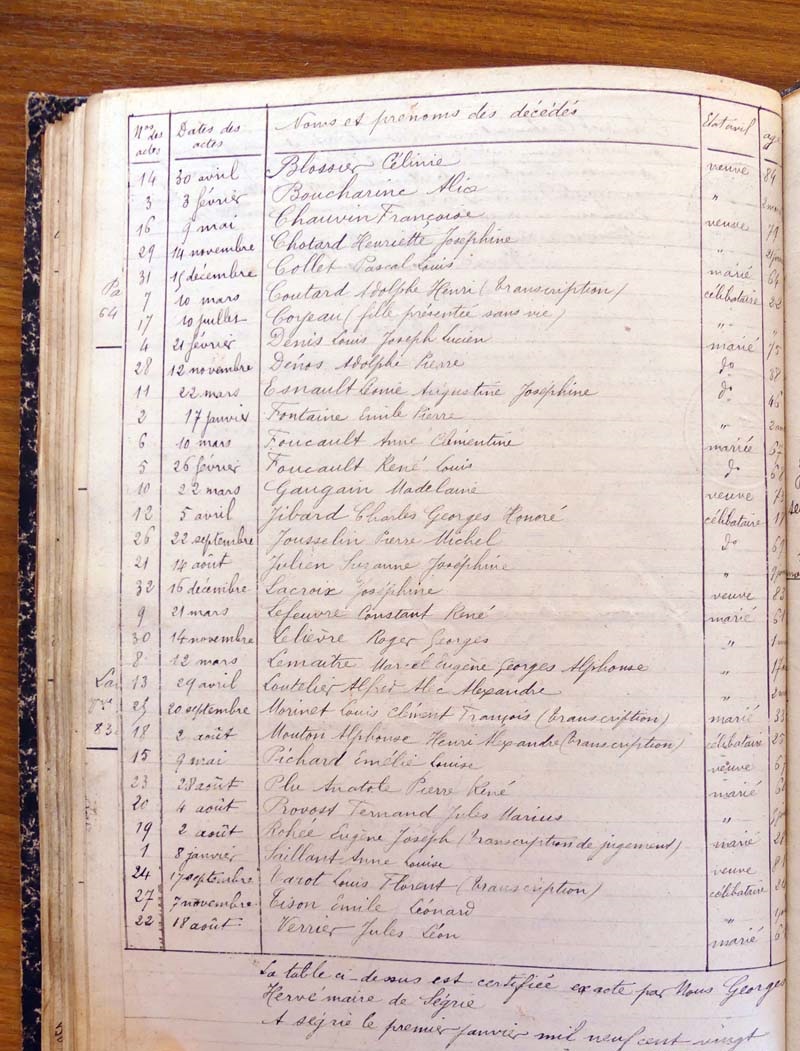 Nos des actes Dates des actes Noms et prénoms des décédés Etat civil age
14 30 avril Blossier Célinie veuve 84
3 3 février Boucharine Alix "
16 9 mai Chauvin Françoise veuve 79
29 14 novembre Chotard Henriette Joséphine "
31 15 décembre Collet Pascal Louis marié 64
7 10 mars Coutard Adolphe Henri (transcription) célibataire 22
17 10 juillet Corjeau (fille présentée sans vie) " "
4 21 février Denis Louis Joseph Lucien marié 75
28 12 novembre Dénos Adolphe Pierre do 38
11 22 mars Esnault Augustine Joséphine do 46
2 17 janvier Fontaine Emile Pierre "
6 10 mars Foucault Anne Clémentine mariée
5 26 février Foucault René Louis do
10 22 mars Gaugain Madelaine veuve
12 5 avril Jibard Charles Georges Honoré célibataire
26 22 septembre Jousselin Pierre Michel do
21 14 août Julien Suzanne Joséphine "
32 16 décembre Lacroix Joséphine veuve
9 21 mars Lefeuvre Constant René marié
30 14 novembre Lelièvre Roger Georges "
8 12 mars Lemaitre Marcel Eugène Georges Alphonse "
13 29 avril Loutelier Alfred Alexandre "
25 20 septembre Morinet Louis Clément François (transcription) marié 33
18 2 août Mouton Alphonse Henri Alexandre (transcription) célibataire 25
15 9 mai Pichard Emélie Louise veuve
23 28 août Plu Anatole Pierre René marié
20 4 août Provost Fernand Jules Marius "
19 2 août Rohée Eugène Joseph (transcription de jugement) marié
1 8 janvier Saillant Anne Louise veuve
24 17 septembre Varot Louis Florent (transcription) célibataire
27 7 novembre Tison Emile Léonard "
22 18 août Verrier Jules Léon marié
La table ci-dessus est certifiée exacte par Nous Georges
Hervé maire de Ségrie
A Ségrie le premier janvier mil neuf cent vingt